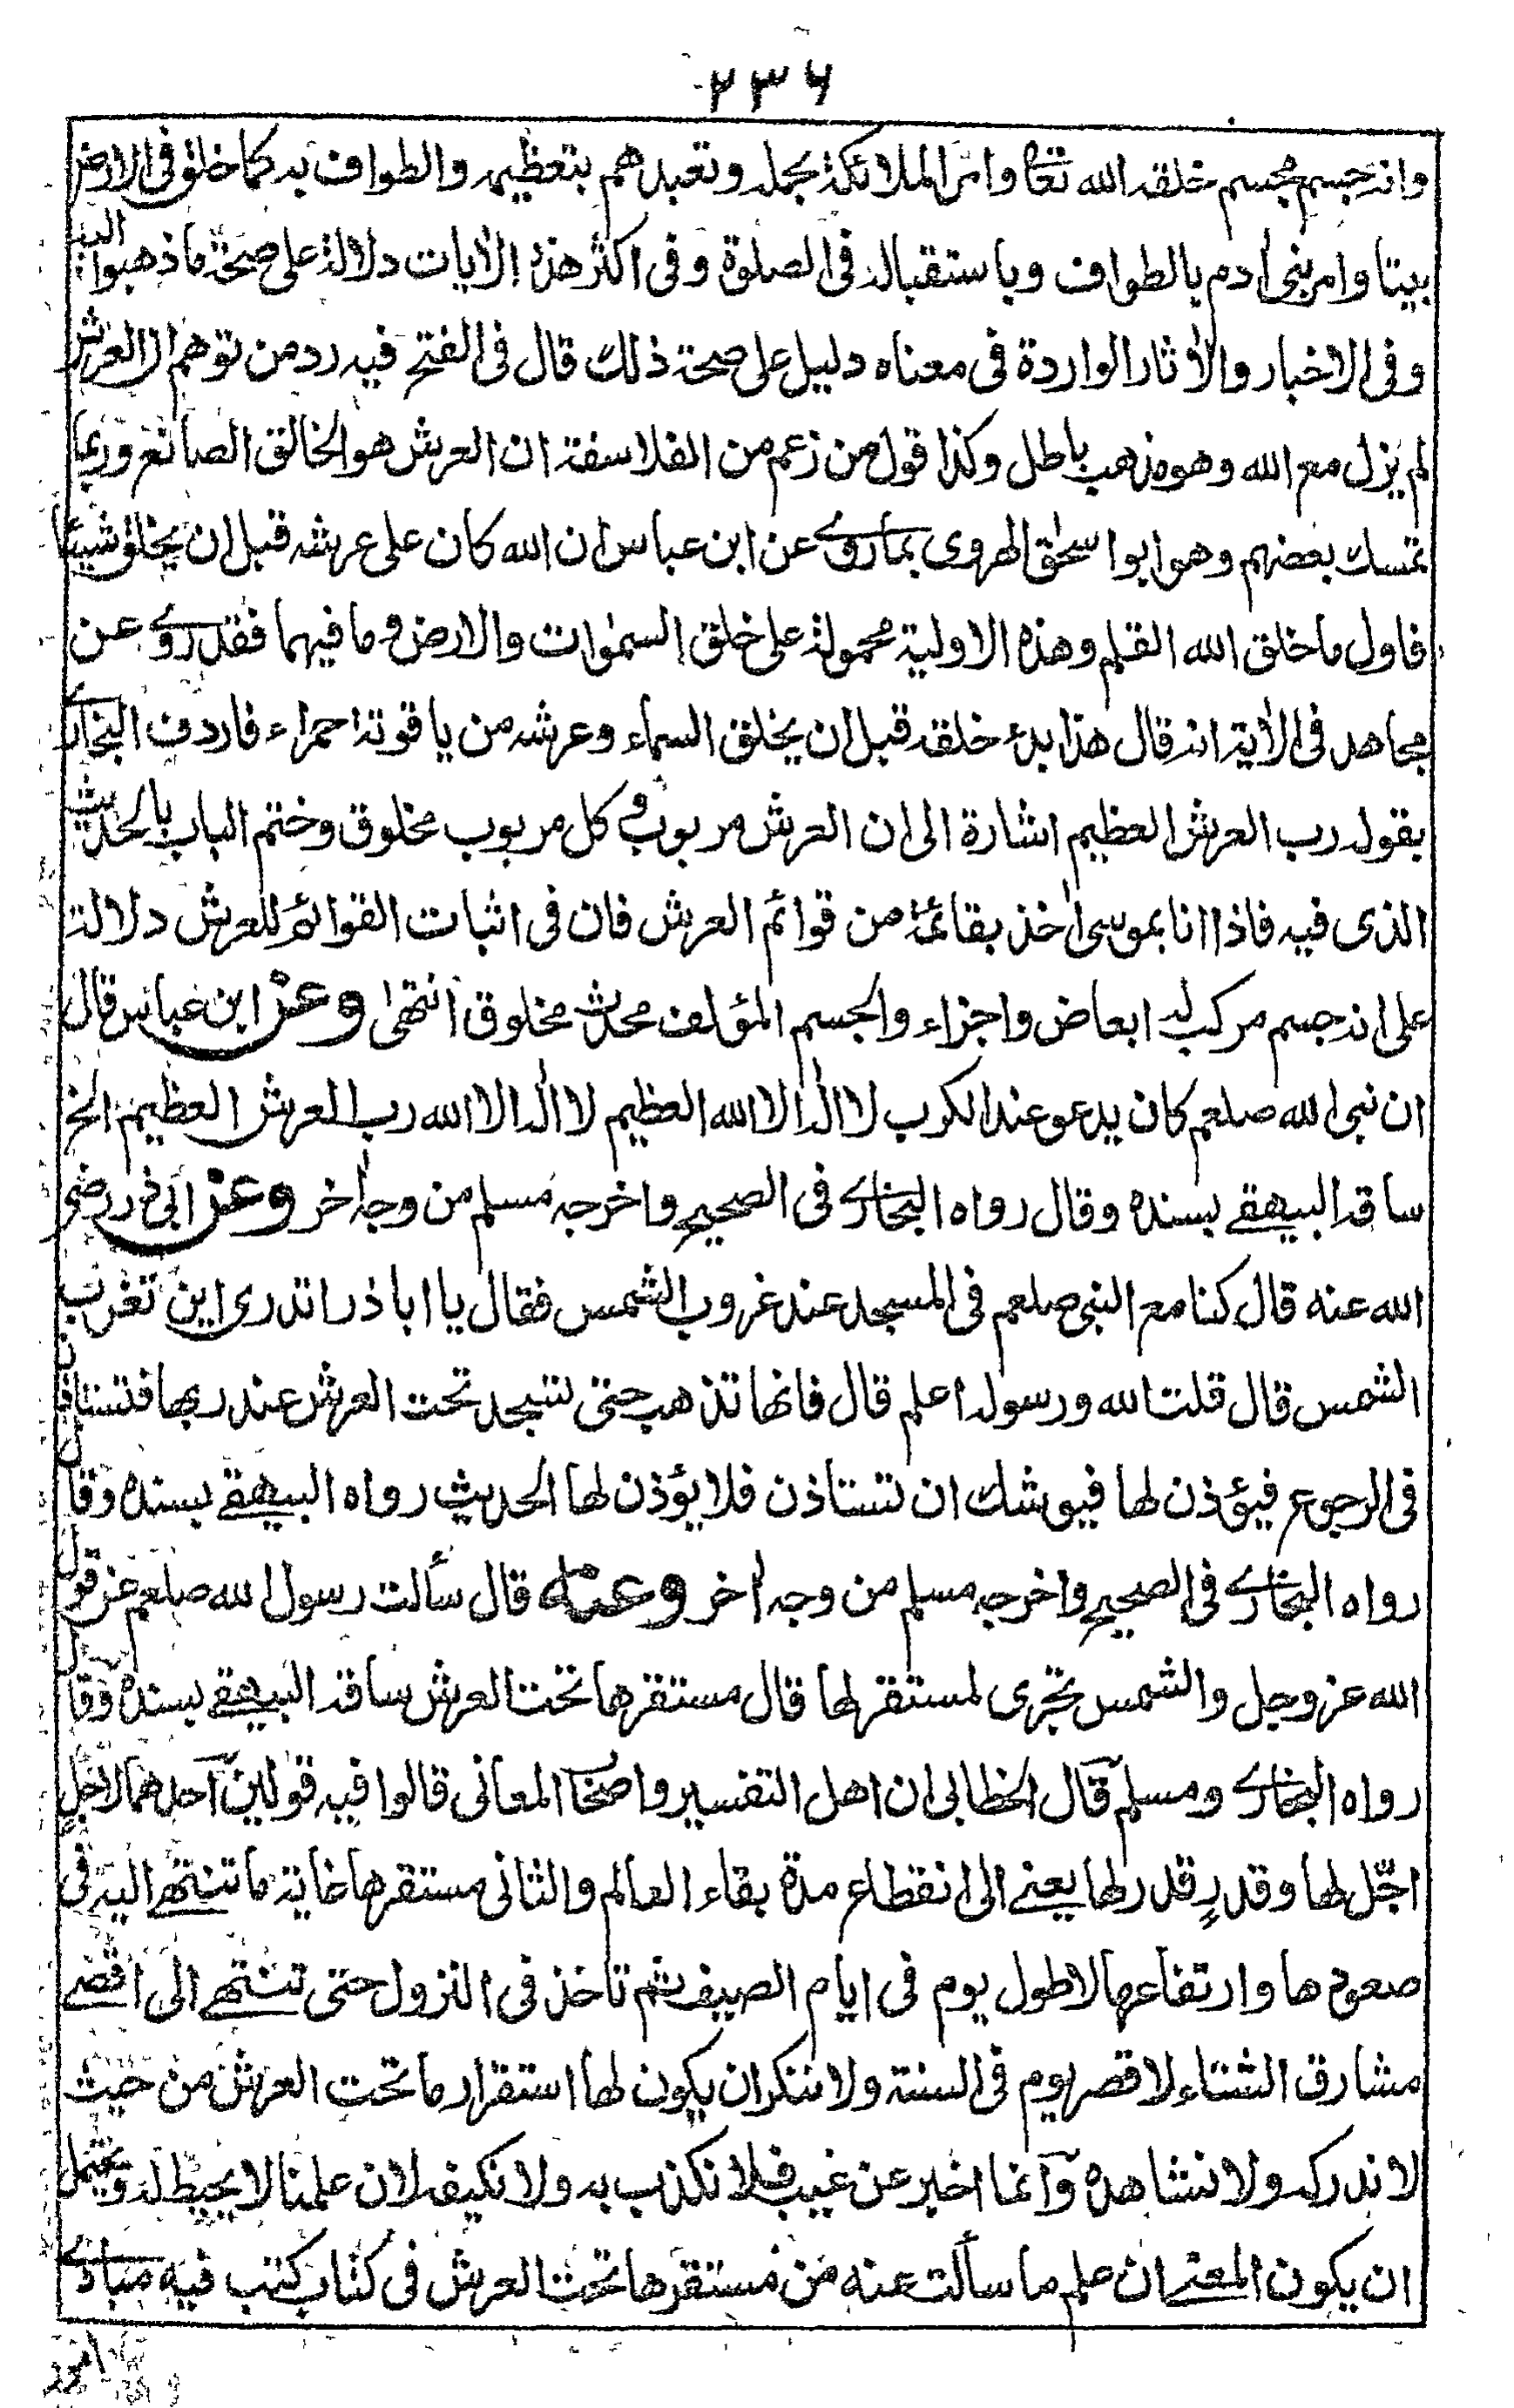 ٢٣٦
وانه جسم مجسم خلقه الله تعا وامر الملائكة بحمله وتعبدهم بتعظيمه والطواف به كما خلق فى الارض
بيتا وامر بنى اٰدم بالطواف وباستقباله فى الصلوة وفى اكثر هذه الاٰيات دلالة على صحة ما ذهبوا اليه
وفى الاخبار والاٰثار الواردة فى معناه دليل على صحة ذلك قال فى الفتح فيه رد من توهم ان العرش
لم يزل مع الله وهو مذهب باطل وكذا قول من زعم من الفلاسفة ان العرش هو الخالق الصانع وربما
تمسك بعضهم وهو ابو اسحٰق الهروى بما روى عن ابن عباس ان الله كان على عرشه قبل ان يخلق شيئا
فاول ما خلق الله القلم وهذه الاولية محمولة على خلق السمٰوات والارض وما فيهما فقد روى عن
مجاهد فى الاٰية انه قال هذا بدء خلقه قبل ان يخلق السماء وعرشه من ياقوتة احمراء فاردف البخارى
بقوله رب العرش العظيم اشارة الى ان العرش مربوب وكل مربوب مخلوق وختم الباب بالحديث
الذى فيه فاذا انا بموسى اٰخذ بقائمة من قوائم العرش فان فى اثبات القوائم للعرش دلالة
على انه جسم مركب له ابعاض واجزاء والجسم المؤلف محدث مخلوق انتهٰى وعن ابن عباس قال
ان نبى الله صلعم كان يدعو عند الكرب لا اله الا الله العظيم لا اله الا الله رب العرش العظيم الخ
ساقه البيهقى بسنده وقال رواه البخارى فى الصحيح واخرجه مسلم من وجه اٰخر وعن ابى ذر رضى
الله عنه قال كنا مع النبى صلعم فى المسجد عند غروب الشمس فقال يا ابا ذر اتدرى اين تغرب
الشمس قال قلت الله ورسوله اعلم قال فانها تذهب حتى تسجد تحت العرش عند ربها فتستاذن
فى الرجوع فيؤذن لها فيوشك ان تستاذن فلا يؤذن لها الحديث رواه البيهقى بسنده وقال
رواه البخارى فى الصحيح واخرجه مسلم من وجه اٰخر وعنه قال سألت رسول الله صلعم عن قول
الله عز وجل والشمس تجرى لمستقر لها قال مستقرها تحت العرش ساقه البيهقى بسنده وقال
رواه البخارى ومسلم قال الخطابى ان اهل التفسير واصحا المعانى قالوا فيه قولين احدهما لاجلٍ
اجّل لها وقدرٍ قدر لها يعنى الى انقطاع مدة بقاء العالم والثانى مستقرها غاية ما تنتهى اليه فى
صعودها وارتفاعها لاطول يوم فى ايام الصيف ثم تاخذ فى النزول حتى تنتهى الى اقصى
مشارق الشتاء لاقصر يوم فى السنة ولا ننكر ان يكون لها استقرار ما تحت العرش من حيث
لا ندركه ولا نشاهده وانما اخبر عن غيب فلا نكذب به ولا نكيفه لان علمنا لا يحيط له ويحتمل
ان يكون المعنى ان علم ما سألت عنه من مستقرها تحت العرش فى كتاب كتب فيه مبادى